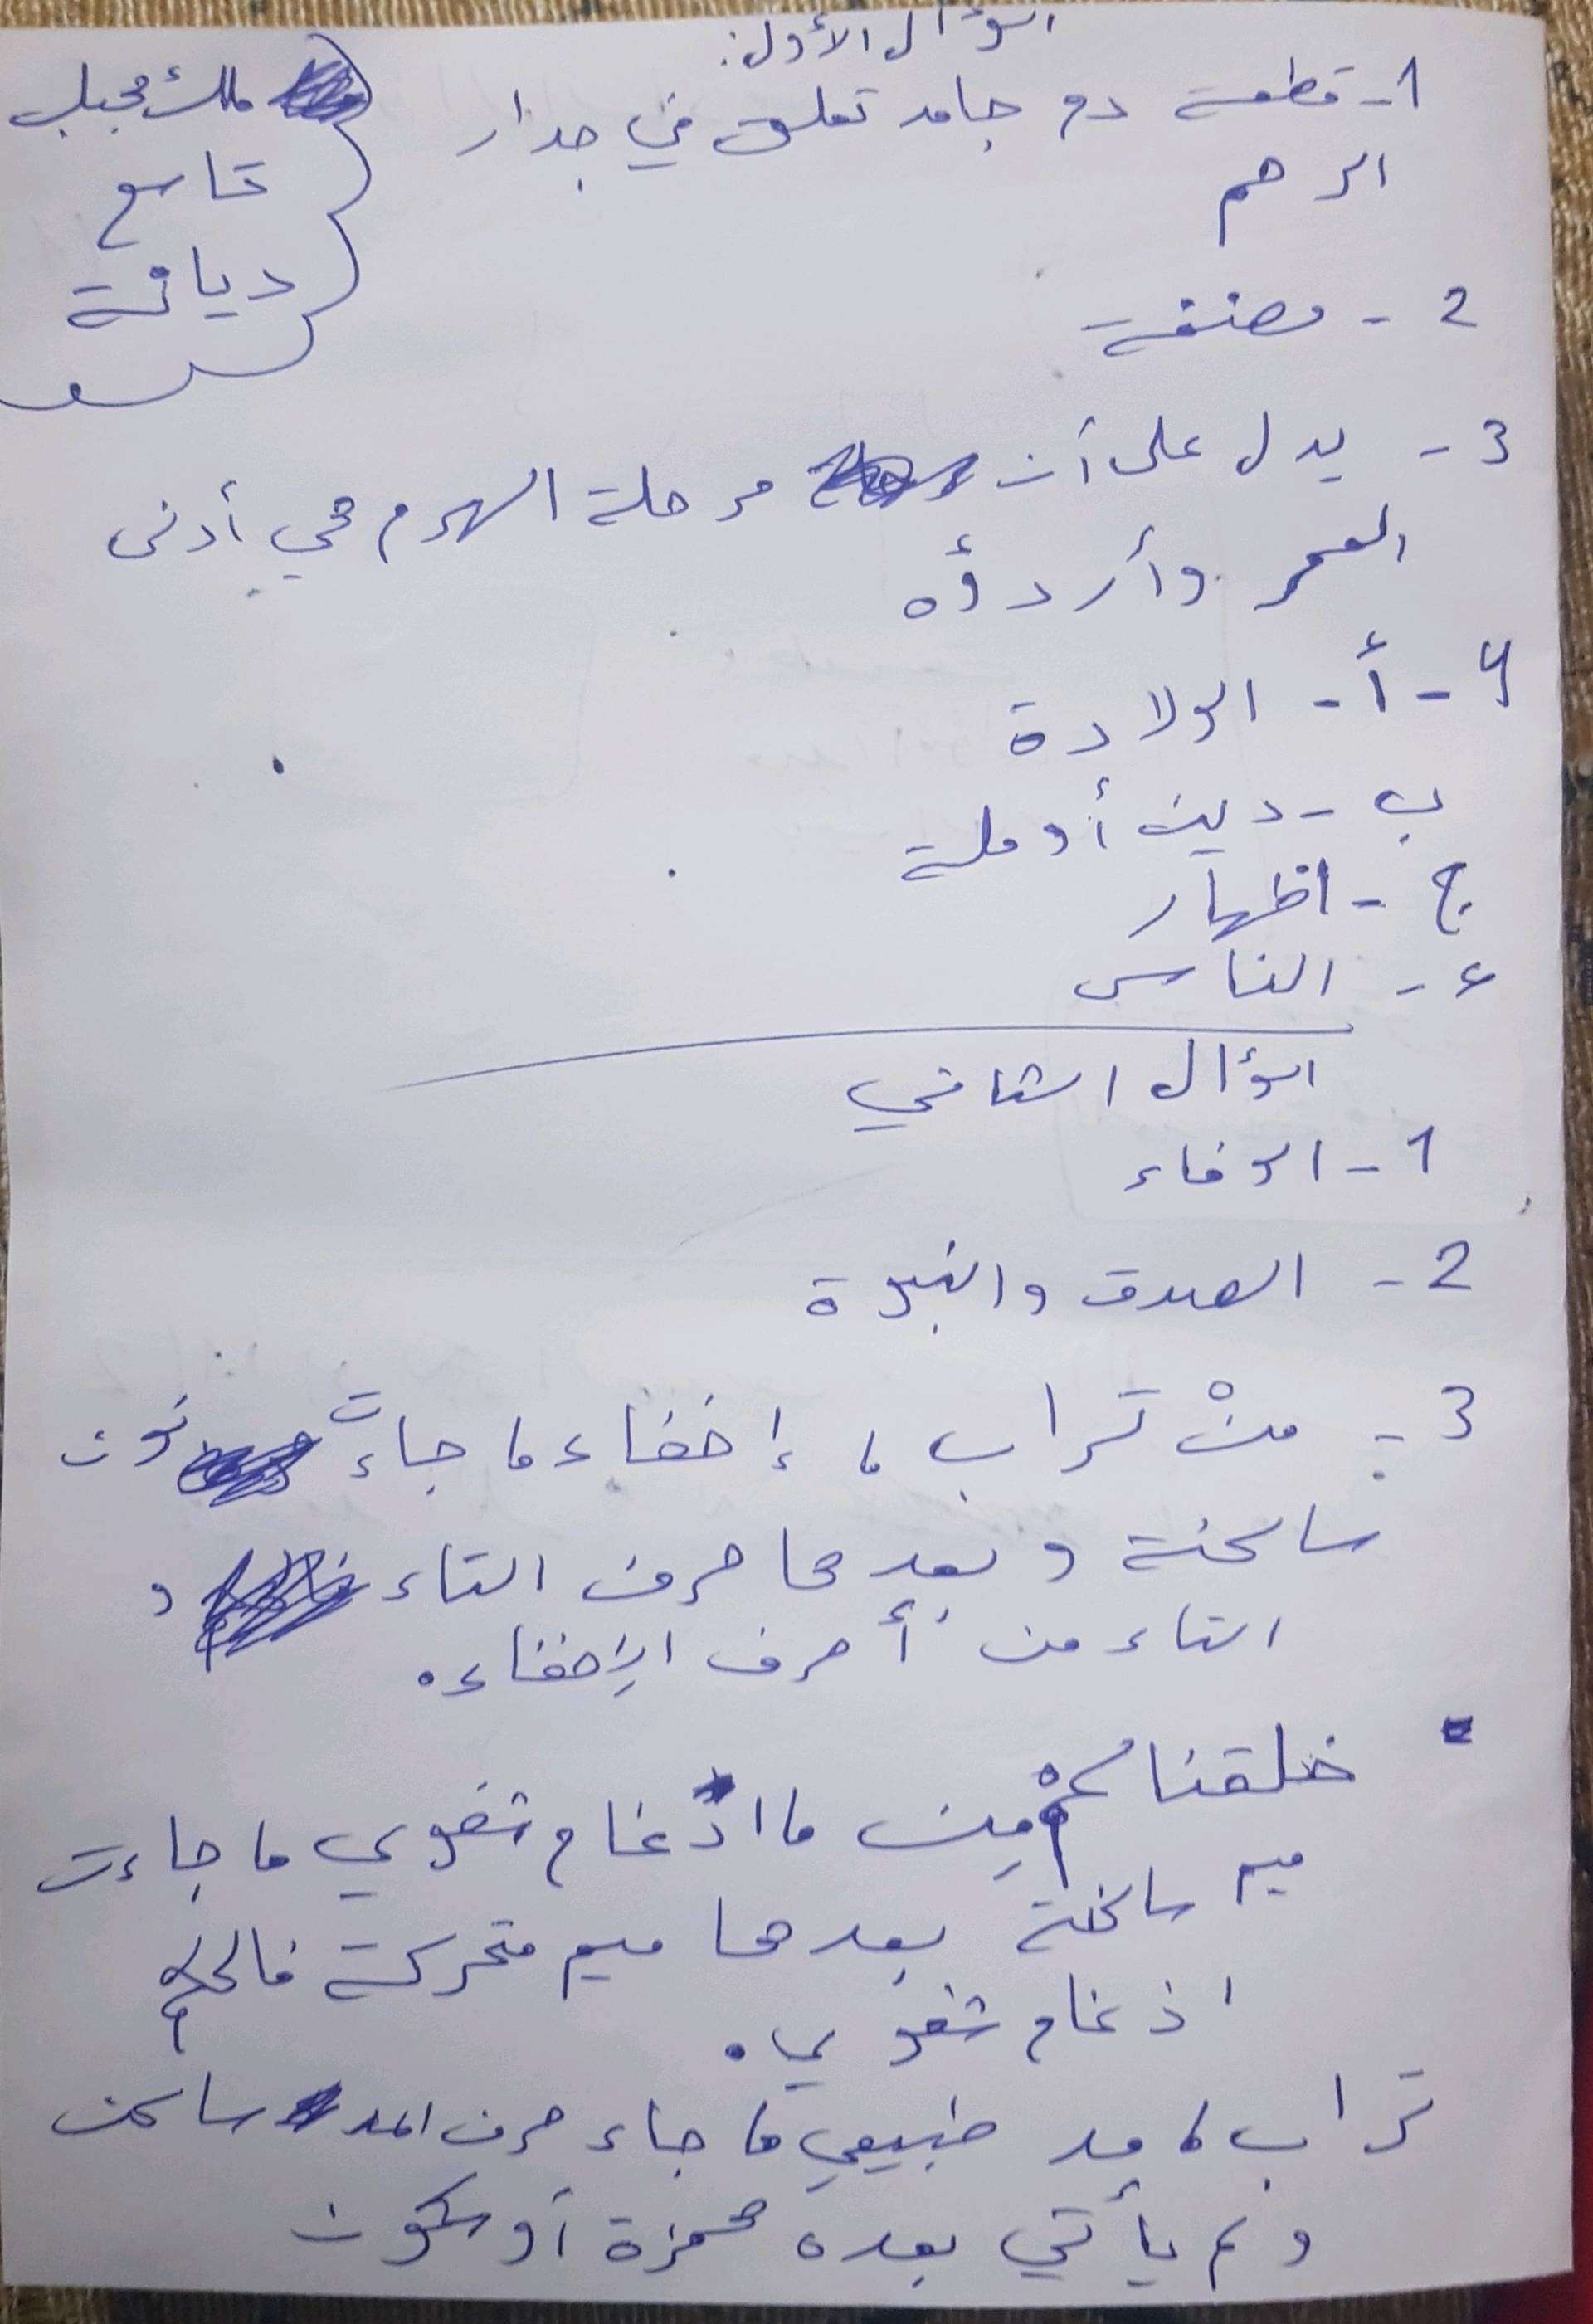 السؤال الأول:
ملك مجبل
تاسع
ديانة
1- قطعة دم جامد تعلق في جدار
الرحم
2 - مضغة
3 - يدل على أن مرحلة الهرم هي أدنى
العمر وأردؤه
4 - أ - الولادة
ب - دين أو ملة
ج - اظهار
ء - الناس
السؤال الثاني
1 - الوفاء
2 - الصدق والنبوة
3 - منْ تراب ، إخفاء ، جاءت نون
ساكنة وبعدها حرف التاء و
التاء من أحرف الإخفاء.
خلقناكمْ مِن ، ادغام شفوي ، جاءت
ميم ساكنة بعدها ميم متحركة فالحكم
اذغام شفوي.
تراب ، مد طبيعي ، جاء حرف المد ساكن
ولم يأتي بعده همزة أو سكون